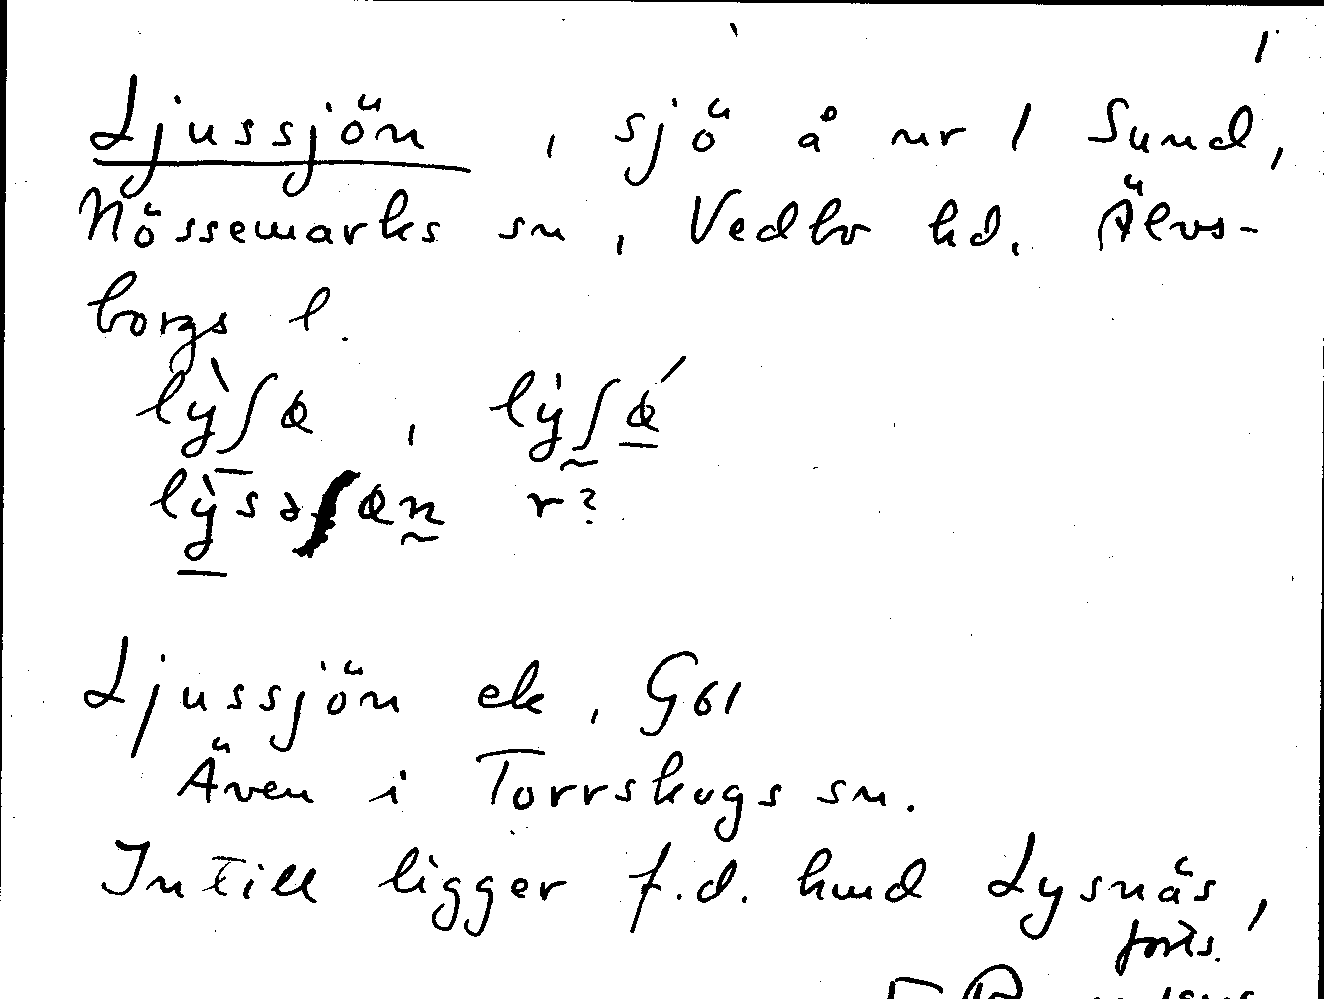 1
Ljussjön, sjö å nr 1 Sund,
Nössemarks sn, Vedbo hd, Älvs-
borgs l.
lỳʃœ, lýʃœ́
lỳsəʃœn r?
Ljussjön ek, G61
Även i Torrskogs sn.
Intill ligger f.d. hmd Lysnäs,
forts.